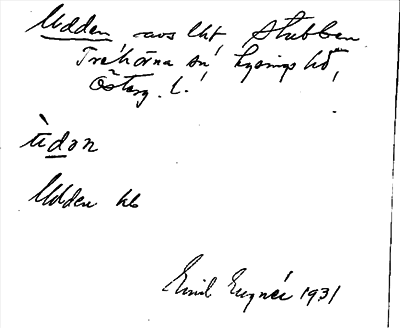 Udden avs lht Stubben
Trehörna sn, Kyinge hd,
Österg. l.
ùdɷn
Udden hb
Emil Eugnér 1931